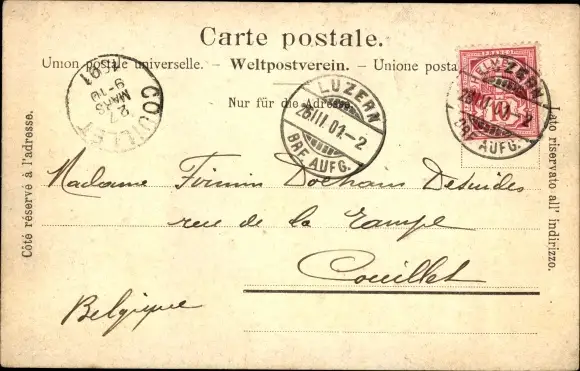 Carte postale.
Union postale universelle. - Weltpostverein. - Unione posta
Nur für die Adresse.
Côté réservé à l'adresse.
Lato riservato all' indirizzo.
COUILLET
9-10
MARS
1901
LUZERN
26.III.01.-2
BRF. AUFG.
HELVETIA
10
LUZERN
26.III.01.-2
BRF. AUFG.
Madame Firmin Dochain Desuides
rue de la Rampe
Couillet
Belgique